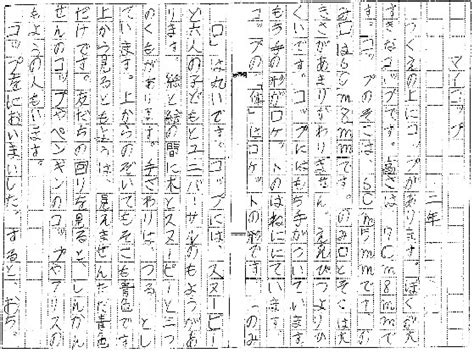 マイコップ
三年
つくえの上にコップがあります。ぼくが大
すきなコップです。高さは、7cm8mm
です。コップのそこは、6cm5mmです。の
み口は8cm8mmです。のみ口とそこは大
きさがあまりかわりません。えんぴつよりひ
くいです。コップにはもち手がついています。
もち手の形がロケットのはねににています。
コップの「体」はロケットの形です。「のみ
口」は丸いです。コップには、スヌーピー
と六人の子どもとユニバーサルのもようがあ
ります。絵と絵の間に木とスヌーピーと三つ
のくもがあります。手ざわりは、つるっとし
ています。上からのぞいてもそこも青色です
上から見るともようは、見えません。ただ青色
だけです。友だちの回りを見ると、しんかん
せんのコップやペンギンのコップやアリスの
もようの人もいます。
コップをにおいました。すると、おち